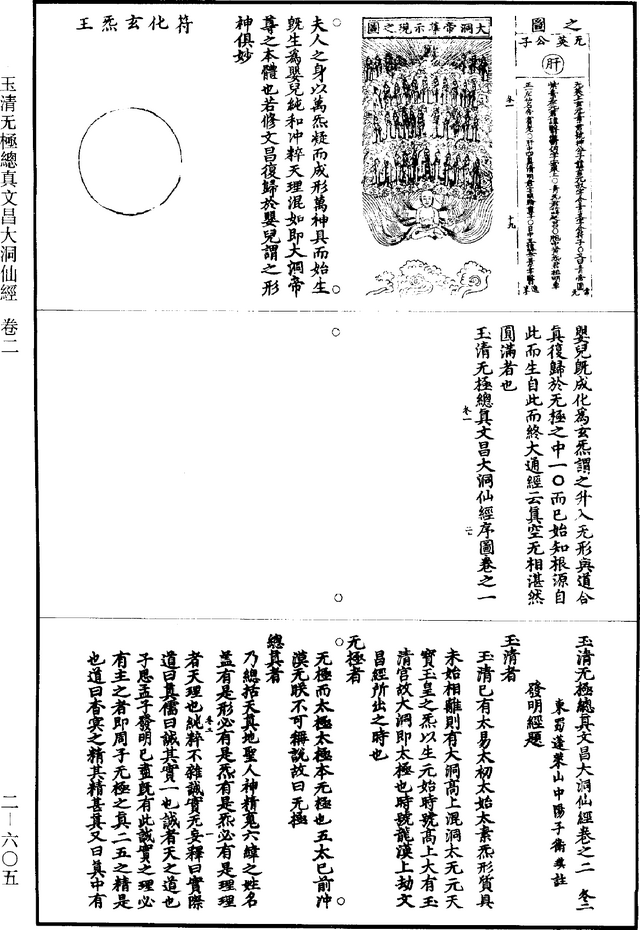 之圖
无英公子
肝
大洞帝尊示現之圖
夫人之身以萬炁凝而成形萬神具而始生
旣生為嬰兒純和冲粹天理混如即大洞帝
尊之本體也若修文昌復歸於嬰兒謂之形
神俱妙
符化玄炁王
嬰兒旣成化為玄炁謂之升入无形與道合
真復歸於无極之中一〇而已始知根源自
此而生自此而終大通經云真空无相湛然
圓滿者也
玉清无極總真文昌大洞仙經序圖卷之一
玉清无極總真文昌大洞仙經卷之二 冬二
東蜀蓬萊山中陽子衛琪註
發明經題
玉清者
玉清已有太易太初太始太素炁形質具
未始相離則有大洞高上混洞太无元天
寶玉皇之炁以生元始時號高上大有玉
清宮故大洞即太極也時號龍漢上劫文
昌經所出之時也
无極者
无極而太極太極本无極也五太已前冲
漠无朕不可稱說故曰无極
總真者
乃總括天真地聖人神精鬼六緯之姓名
蓋有是形必有是炁有是炁必有是理理
者天理也純粹不雜誠實无妄釋曰實際
道曰真儒曰誠其實一也誠者天之道也
子思孟子發明已盡旣有此誠實之理必
有主之者即周子无極之真二五之精是
也道曰杳冥之精其精甚真又曰真中有
玉清无極總真文昌大洞仙經 卷二
二—六〇五